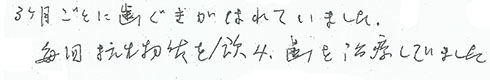 3ヶ月ごとに歯ぐきがはれていました.
毎回抗生物質を飲み、歯を治療していました